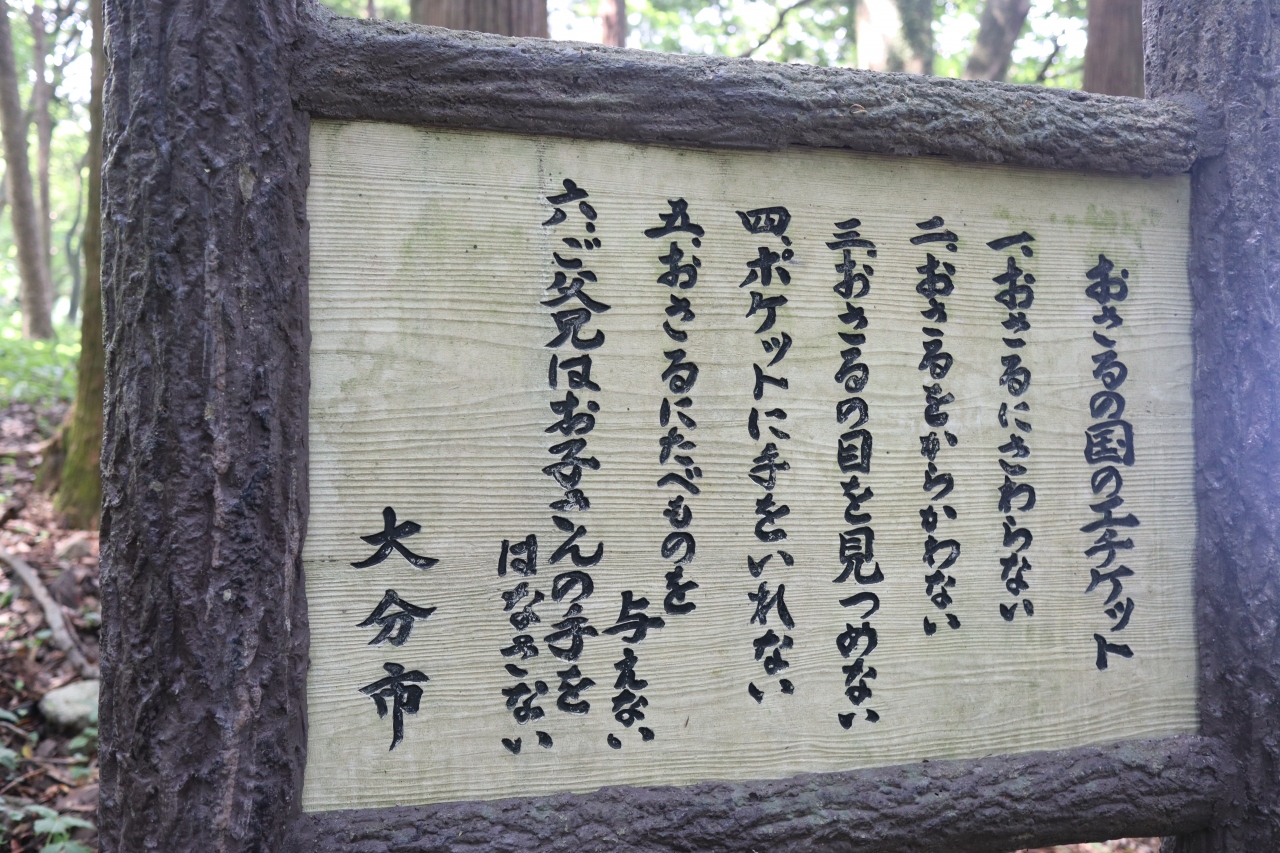 おさるの国のエチケット
一、おさるにさわらない
二、おさるをからかわない
三、おさるの目を見つめない
四、ポケットに手をいれない
五、おさるにたべものを
与えない
六、ご父兄はお子さんの手を
はなさない
大分市